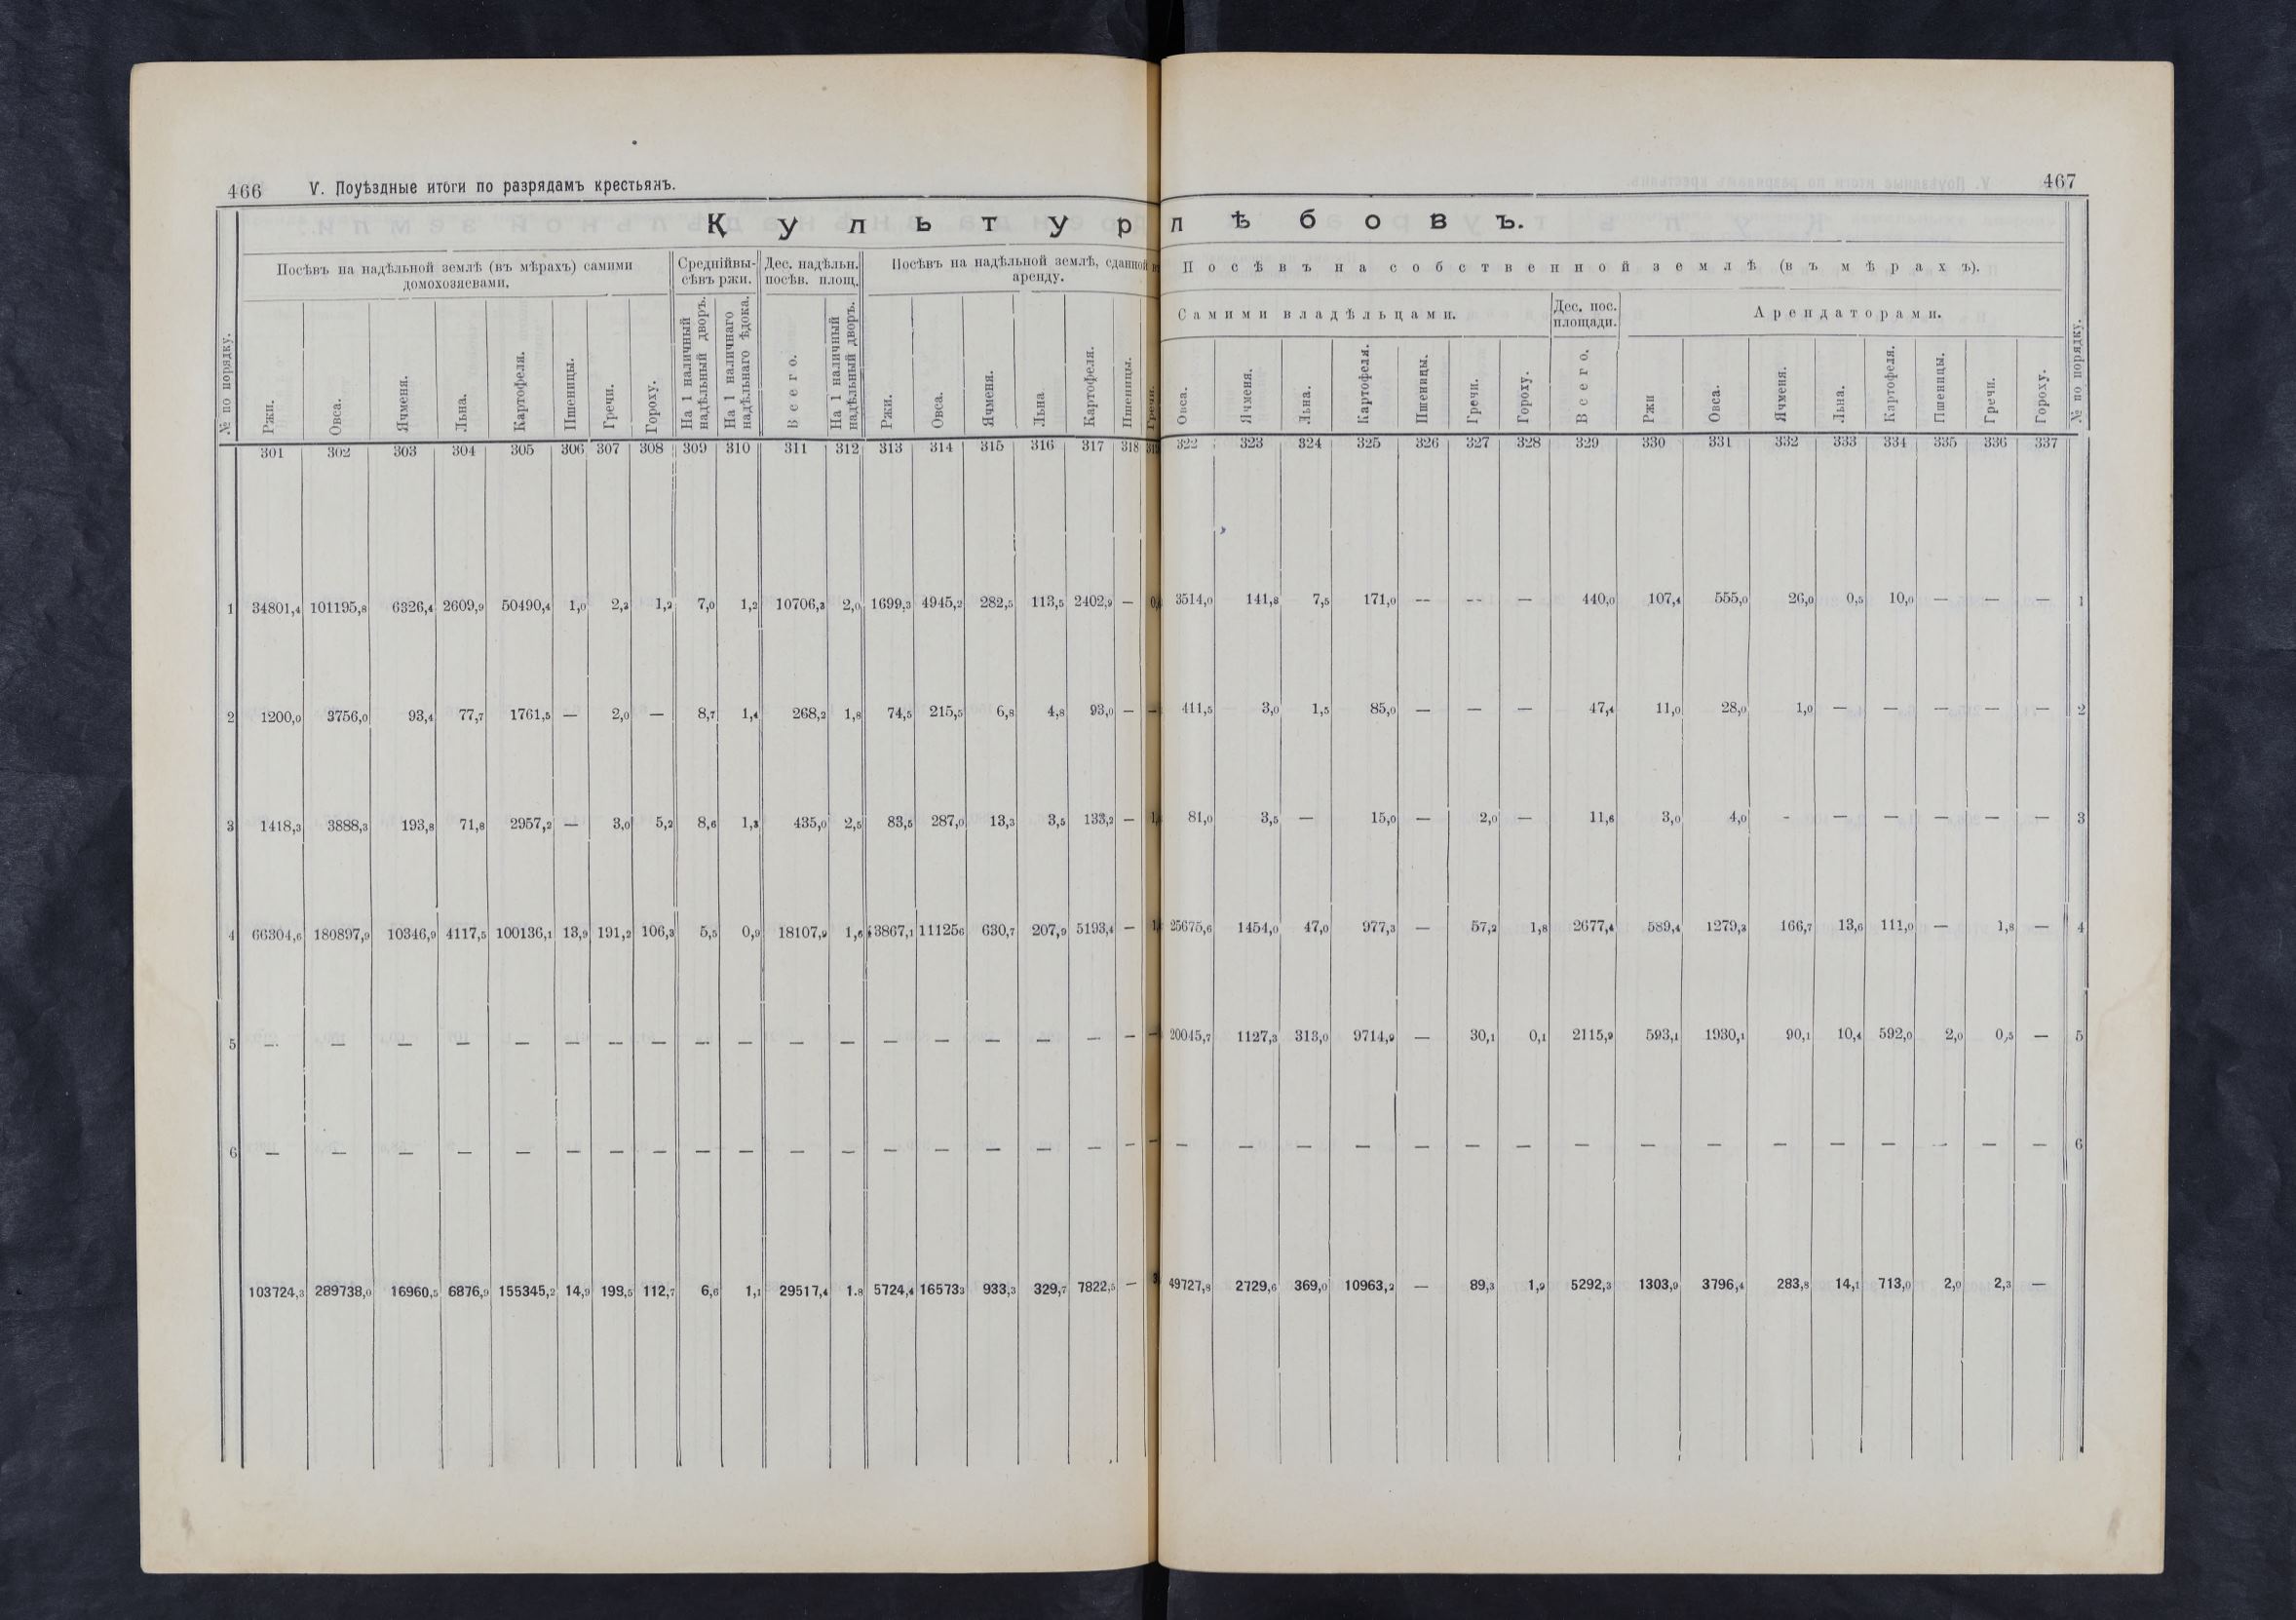 466 V. Поуѣздные итоги по разрядамъ крестьянъ.
Культур
Посѣвъ на надѣльной землѣ (въ мѣрахъ) самими домохозяевами. Среднійвысѣвъ ржи. Дес. надѣльн. посѣв. площ. Посѣвъ на надѣльной землѣ, сданной аренду.
№ по порядку. Ржи. Овса. Ячменя. Льна. Картофеля. Пшеницы. Гречи. Гороху. На 1 наличный надѣльный дворъ. На 1 наличнаго надѣльнаго ѣдока. Всего. На 1 наличный надѣльный дворъ. Ржи. Овса. Ячменя. Льна Картофеля. Пшеницы. Гречи.
301 302 303 304 305 306 307 308 309 310 311 312 313 314 315 316 317 318
1 34801,4 101195,8 6326,4 2609,9 50490,4 1,0 2,3 1,2 7,0 1,2 10706,3 2,0 1699,3 4945,2 282,5 113,5 2402,9 —
2 1200,0 3756,0 93,4 77,7 1761,5 — 2,0 — 8,7 1,4 268,2 1,8 74,5 215,5 6,8 4,8 93,0 — —
3 1418,3 3888,3 193,8 71,8 2957,2 — 3,0 5,2 8,6 1,3 435,0 2,5 83,5 287,0 13,3 3,5 133,2 —
4 66304,6 180897,9 10346,9 4117,5 100136,1 13,9 191,2 106,3 5,5 0,9 18107,9 1,6 3867,1 111256 630,7 207,9 5193,4 —
5 — — — — — — — — — — — — — — — — — — —
6 — — — — — — — — — — — — — — — — — — —
103724,3 289738,0 16960,5 6876,9 155345,2 14,9 199,5 112,7 6,6 1,1 29517,4 1.8 5724,4 165733 933,3 329,7 7822,5 —
467
лѣбовъ.
Посѣвъ на собственной землѣ (въ мѣрахъ).
Самими владѣльцами. Дес. пос. площади. Арендаторами.
Овса. Ячменя. Льна. Картофеля. Пшеницы. Гречи. Гороху. Всего. Ржи Овса. Ячменя. Льна. Картофеля. Пшеницы. Гречи. Гороху. № по порядку.
322 323 324 325 326 327 328 329 330 331 332 333 334 335 336 337
3514,0 141,8 7,5 171,0 — — — 440,0 107,4 555,0 26,0 0,5 10,0 — — — 1
411,5 3,0 1,5 85,0 — — — 47,4 11,0 28,0 1,0 — — — — — 2
81,0 3,5 — 15,0 — 2,0 — 11,6 3,0 4,0 - — — — — — 3
25675,6 1454,0 47,0 977,3 — 57,2 1,8 2677,4 589,4 1279,3 166,7 13,6 111,0 — 1,8 — 4
20045,7 1127,3 313,0 9714,9 — 30,1 0,1 2115,9 593,1 1930,1 90,1 10,4 592,0 2,0 0,5 — 5
— — — — — — — — — — — — — — — — 6
49727,8 2729,6 369,0 10963,2 — 89,3 1,9 5292,3 1303,9 3796,4 283,8 14,1 713,0 2,0 2,3 —